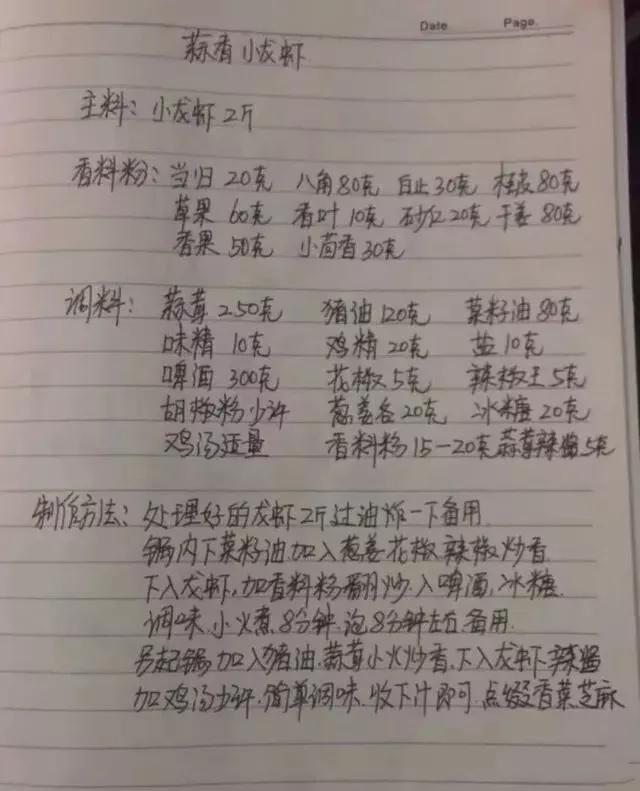 Date Page.
蒜香小龙虾
主料：小龙虾2斤
香料粉：当归20克 八角80克 白止30克 桂皮80克
草果 60克 香叶10克 砂仁20克 干姜 80克
香果 50克 小茴香30克
调料：蒜茸 250克 猪油120克 菜籽油80克
味精 10克 鸡精 20克 盐10克
啤酒 300克 花椒5克 辣椒王5克
胡椒粉少许 葱姜各20克 冰糖20克
鸡汤适量 香料粉15—20克 蒜蓉辣酱5克
制作方法：处理好的龙虾2斤过油炸一下备用
锅内下菜籽油加入葱姜花椒辣椒炒香
下入龙虾，加香料粉翻炒，入啤酒，冰糖
调味，小火煮8分钟，泡8分钟左右备用
另起锅加入猪油，蒜茸小火炒香，下入龙虾，辣酱
加鸡汤少许，简单调味，收下汁即可，点缀香菜芝麻